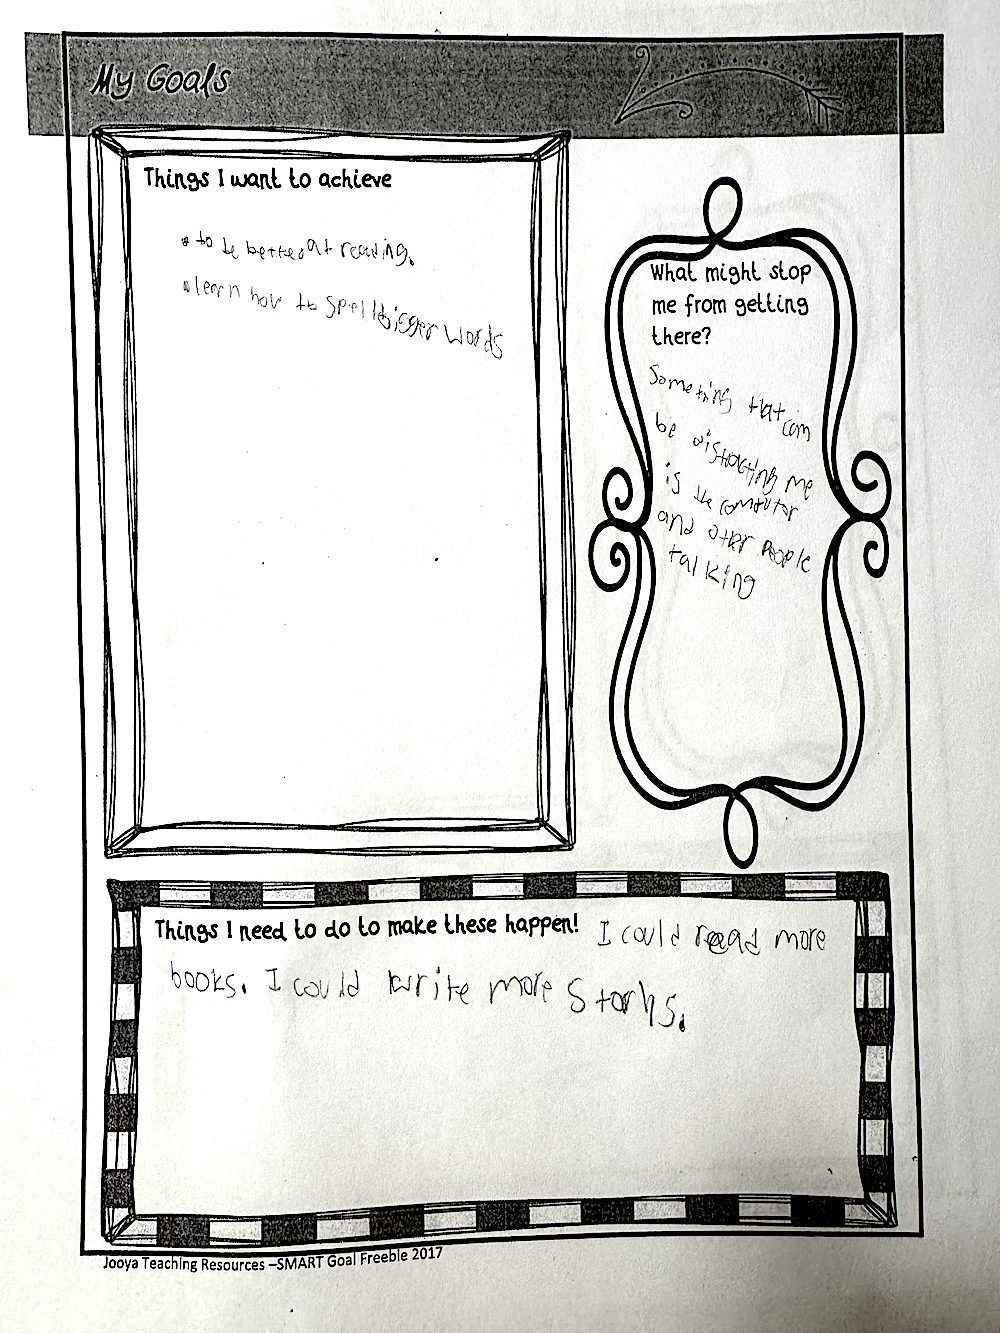 My Goals
Things I want to achieve
• to be better at reading.
• learn how to spell bigger words
What might stop
me from getting
there?
Something that can
be distracting me
is the computor
and other people
talking
Things I need to do to make these happen! I could read more
books. I could write more storys.
Jooya Teaching Resources –SMART Goal Freebie 2017